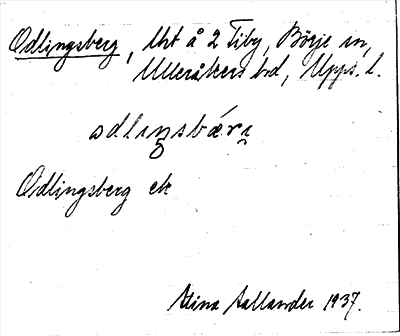 Odlingsberg, Uht å 2 Tiby, Börje sn,
Ulleråkers hd, Upps. l.
odlıŋsbærı
Odlingsberg ek
Stina Aallander 1937.